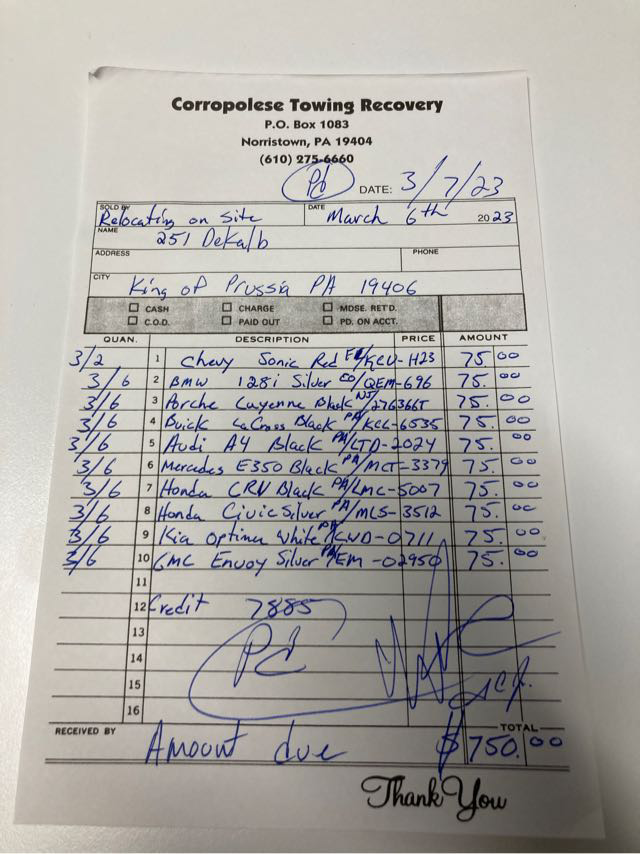 Corropolese Towing Recovery
P.O. Box 1083
Norristown, PA 19404
(610) 275-6660
Pd DATE: 3/7/23
SOLD BY Relocating on Site DATE March 6th 2023
NAME 251 DeKalb
ADDRESS PHONE
CITY King of Prussia PA 19406
CASH CHARGE MDSE. RET'D.
C.O.D. PAID OUT PD. ON ACCT.
QUAN. DESCRIPTION PRICE AMOUNT
3/2 1 Chevy Sonic Red /KCU-H23 75.00
3/6 2 BMW 128i Silver CO/QEM-696 75.00
3/6 3 Porche Cayenne Black NJ/276366T 75.00
3/6 4 Buick LaCross Black PA/KCL-6535 75.00
3/6 5 Audi A4 Black PA/LTD-2024 75.00
3/6 6 Mercedes E350 Black PA/MCT-3379 75.00
3/6 7 Honda CRV Black PA/LMC-5007 75.00
3/6 8 Honda Civic Silver PA/MLS-3512 75.00
3/6 9 Kia Optima White PA/KWD-0711 75.00
3/6 10 GMC Envoy Silver PA/EM-02950 75.00
11
12 Credit 7885
13 Pd
14
15
16
RECEIVED BY Amount due TOTAL $750.00
Thank You